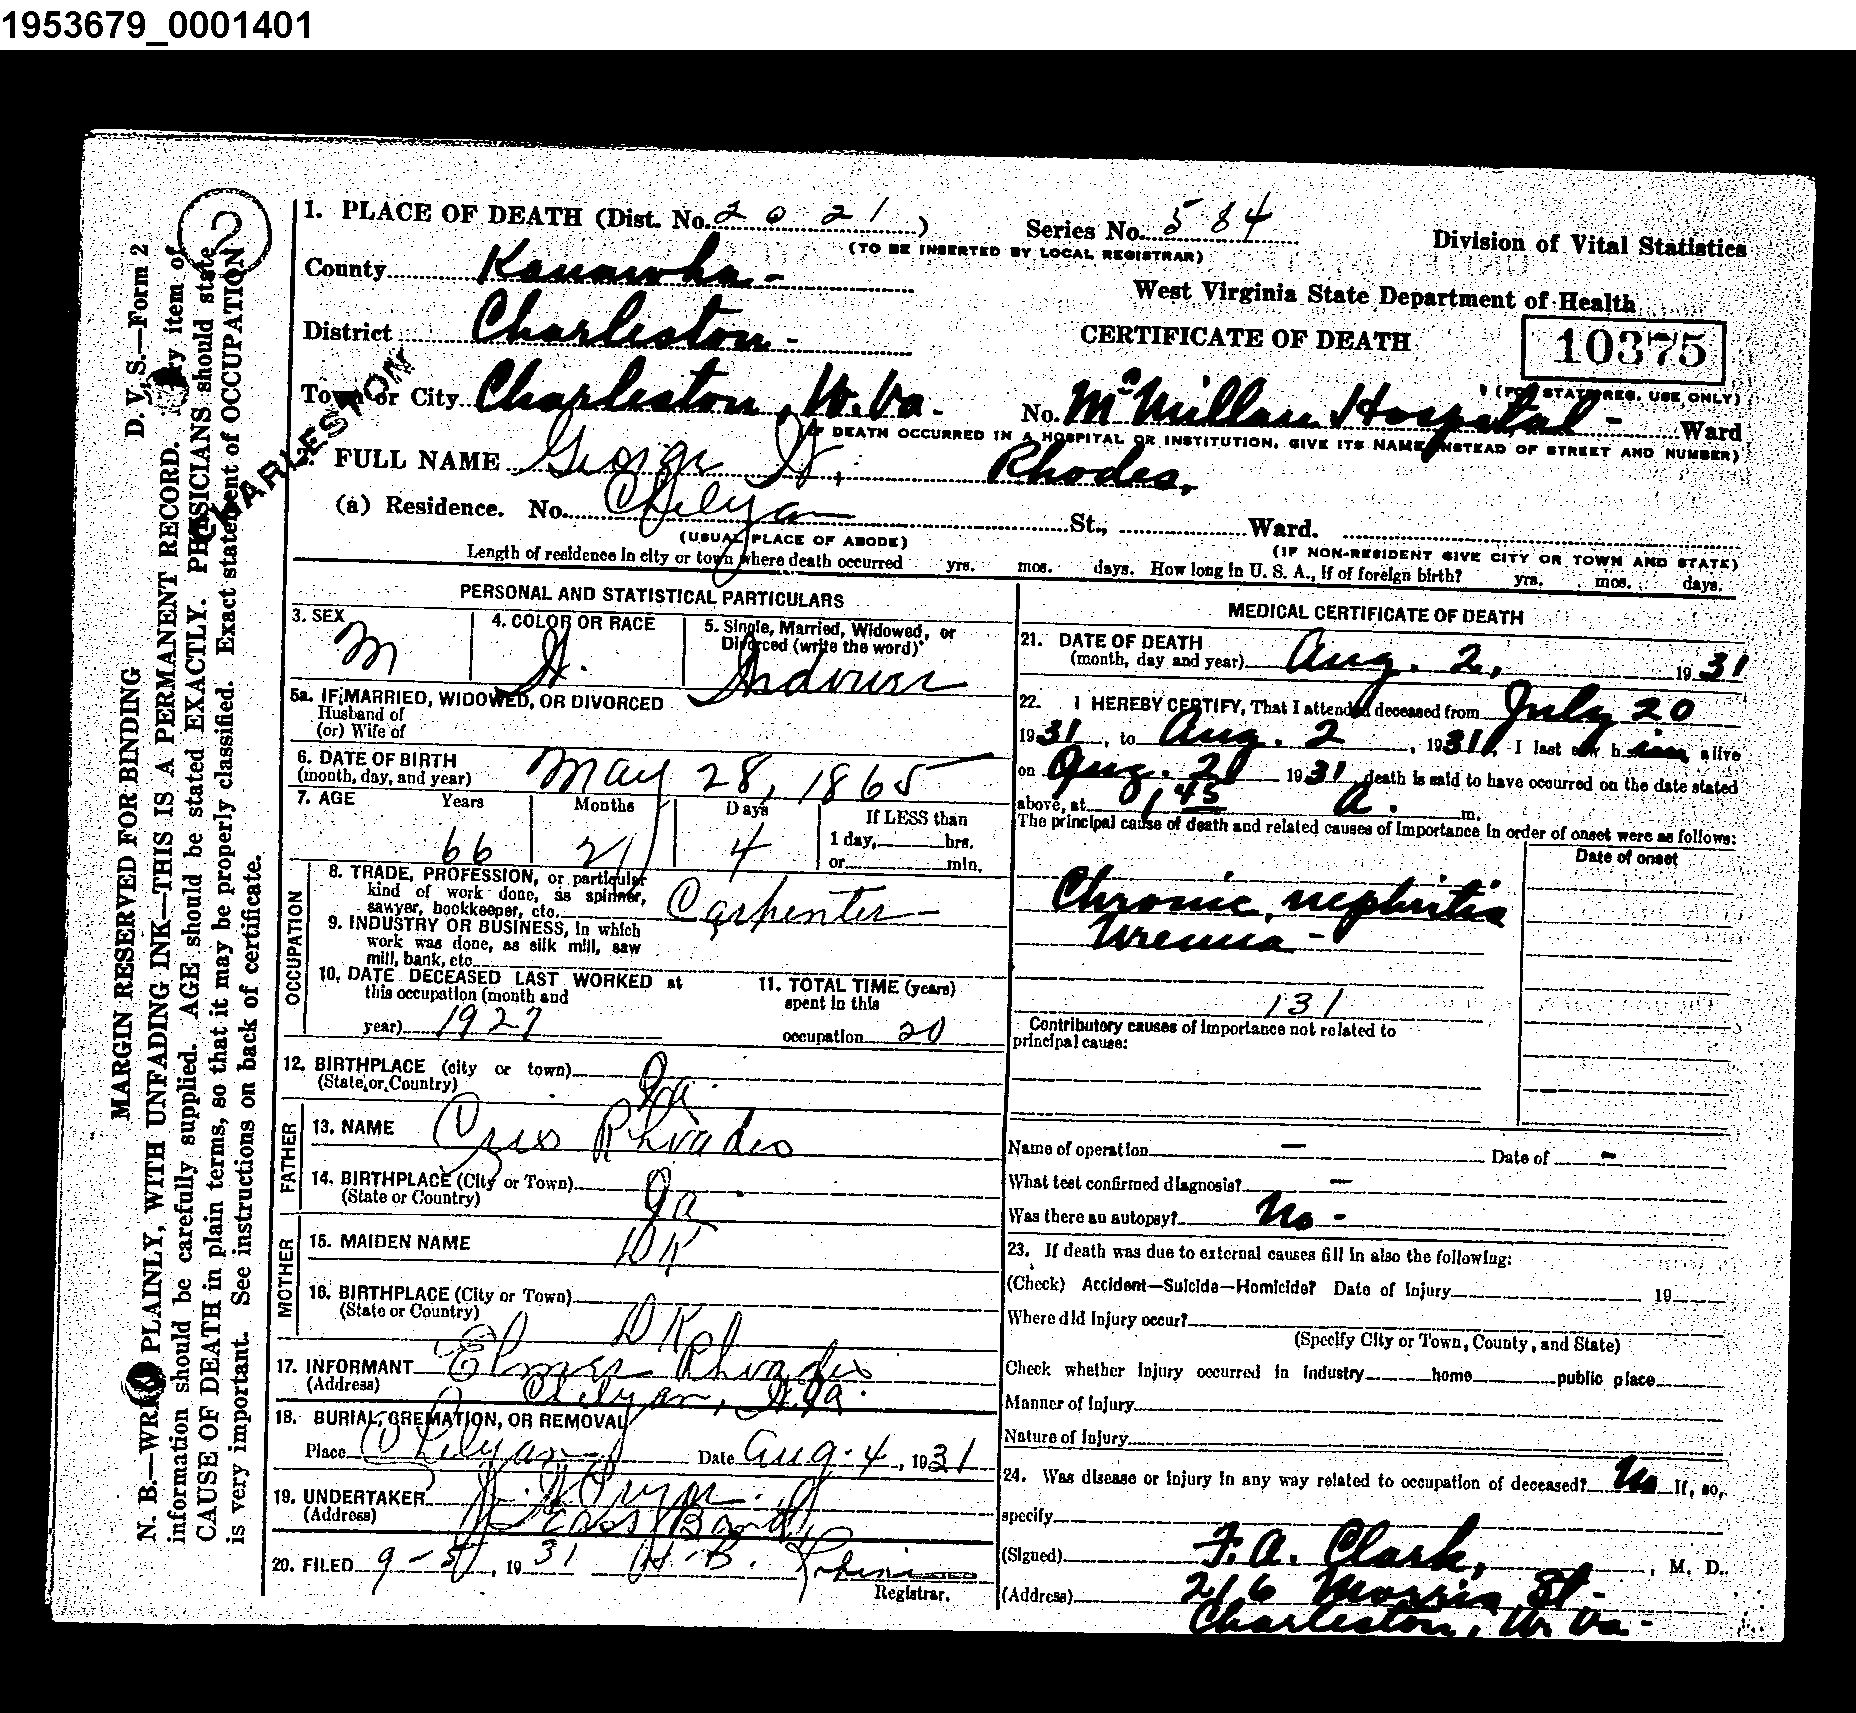 1953679_0001401
1. PLACE OF DEATH (Dist. No. 2021) Series No. 584 Division of Vital Statistics
(TO BE INSERTED BY LOCAL REGISTRAR)
County Kanawha - West Virginia State Department of Health
District Charleston - CERTIFICATE OF DEATH 10375
(FOR STATE REG. USE ONLY)
Town or City Charleston, W. Va. No. McMillan Hospital - Ward
CHARLESTON
(IF DEATH OCCURRED IN A HOSPITAL OR INSTITUTION, GIVE ITS NAME INSTEAD OF STREET AND NUMBER)
2. FULL NAME George W. Rhodes.
(a) Residence. No. Chelyan St., Ward.
(USUAL PLACE OF ABODE) (IF NON-RESIDENT GIVE CITY OR TOWN AND STATE)
Length of residence in city or town where death occurred yrs. mos. days. How long in U. S. A., if of foreign birth? yrs. mos. days.
PERSONAL AND STATISTICAL PARTICULARS
3. SEX M
4. COLOR OR RACE W.
5. Single, Married, Widowed, or
Divorced (write the word)
Widower
5a. IF MARRIED, WIDOWED, OR DIVORCED
Husband of
(or) Wife of
6. DATE OF BIRTH
(month, day, and year) May 28, 1865
7. AGE Years Months Days If LESS than
66 2 4 1 day, hrs.
or min.
OCCUPATION
8. TRADE, PROFESSION, or particular
kind of work done, as spinner,
sawyer, bookkeeper, etc. Carpenter
9. INDUSTRY OR BUSINESS, in which
work was done, as silk mill, saw
mill, bank, etc.
10. DATE DECEASED LAST WORKED at
this occupation (month and
year) 1927
11. TOTAL TIME (years)
spent in this
occupation 20
12. BIRTHPLACE (city or town)
(State or Country)
FATHER
13. NAME Rhoades
14. BIRTHPLACE (City or Town)
(State or Country)
MOTHER
15. MAIDEN NAME DK
16. BIRTHPLACE (City or Town)
(State or Country) DK
17. INFORMANT Elmer Rhoades
(Address) Chelyan, W. Va.
18. BURIAL, CREMATION, OR REMOVAL
Place Chelyan Date Aug. 4, 1931
19. UNDERTAKER Pryor
(Address) East Bank
20. FILED 9-5, 1931 H. B.
Registrar.
MEDICAL CERTIFICATE OF DEATH
21. DATE OF DEATH
(month, day and year) Aug. 2, 1931
22. I HEREBY CERTIFY, That I attended deceased from July 20
1931, to Aug. 2, 1931. I last saw him alive
on Aug. 2 1931 death is said to have occurred on the date stated
above, at 1 45 A. m.
The principal cause of death and related causes of importance in order of onset were as follows:
Date of onset
Chronic nephritis
Uremia -
131
Contributory causes of importance not related to
principal cause:
Name of operation - Date of -
What test confirmed diagnosis? -
Was there an autopsy? No -
23. If death was due to external causes fill in also the following:
(Check) Accident—Suicide—Homicide? Date of Injury 19
Where did injury occur?
(Specify City or Town, County, and State)
Check whether injury occurred in industry home public place
Manner of Injury
Nature of Injury
24. Was disease or injury in any way related to occupation of deceased? No If, so,
specify
(Signed) F. A. Clark, M. D.
(Address) 216 Morris St.
Charleston, W. Va -
D. V. S.—Form 2
MARGIN RESERVED FOR BINDING
N. B.—WRITE PLAINLY, WITH UNFADING INK—THIS IS A PERMANENT RECORD. Every item of
information should be carefully supplied. AGE should be stated EXACTLY. PHYSICIANS should state
CAUSE OF DEATH in plain terms, so that it may be properly classified. Exact statement of OCCUPATION
is very important. See instructions on back of certificate.
2